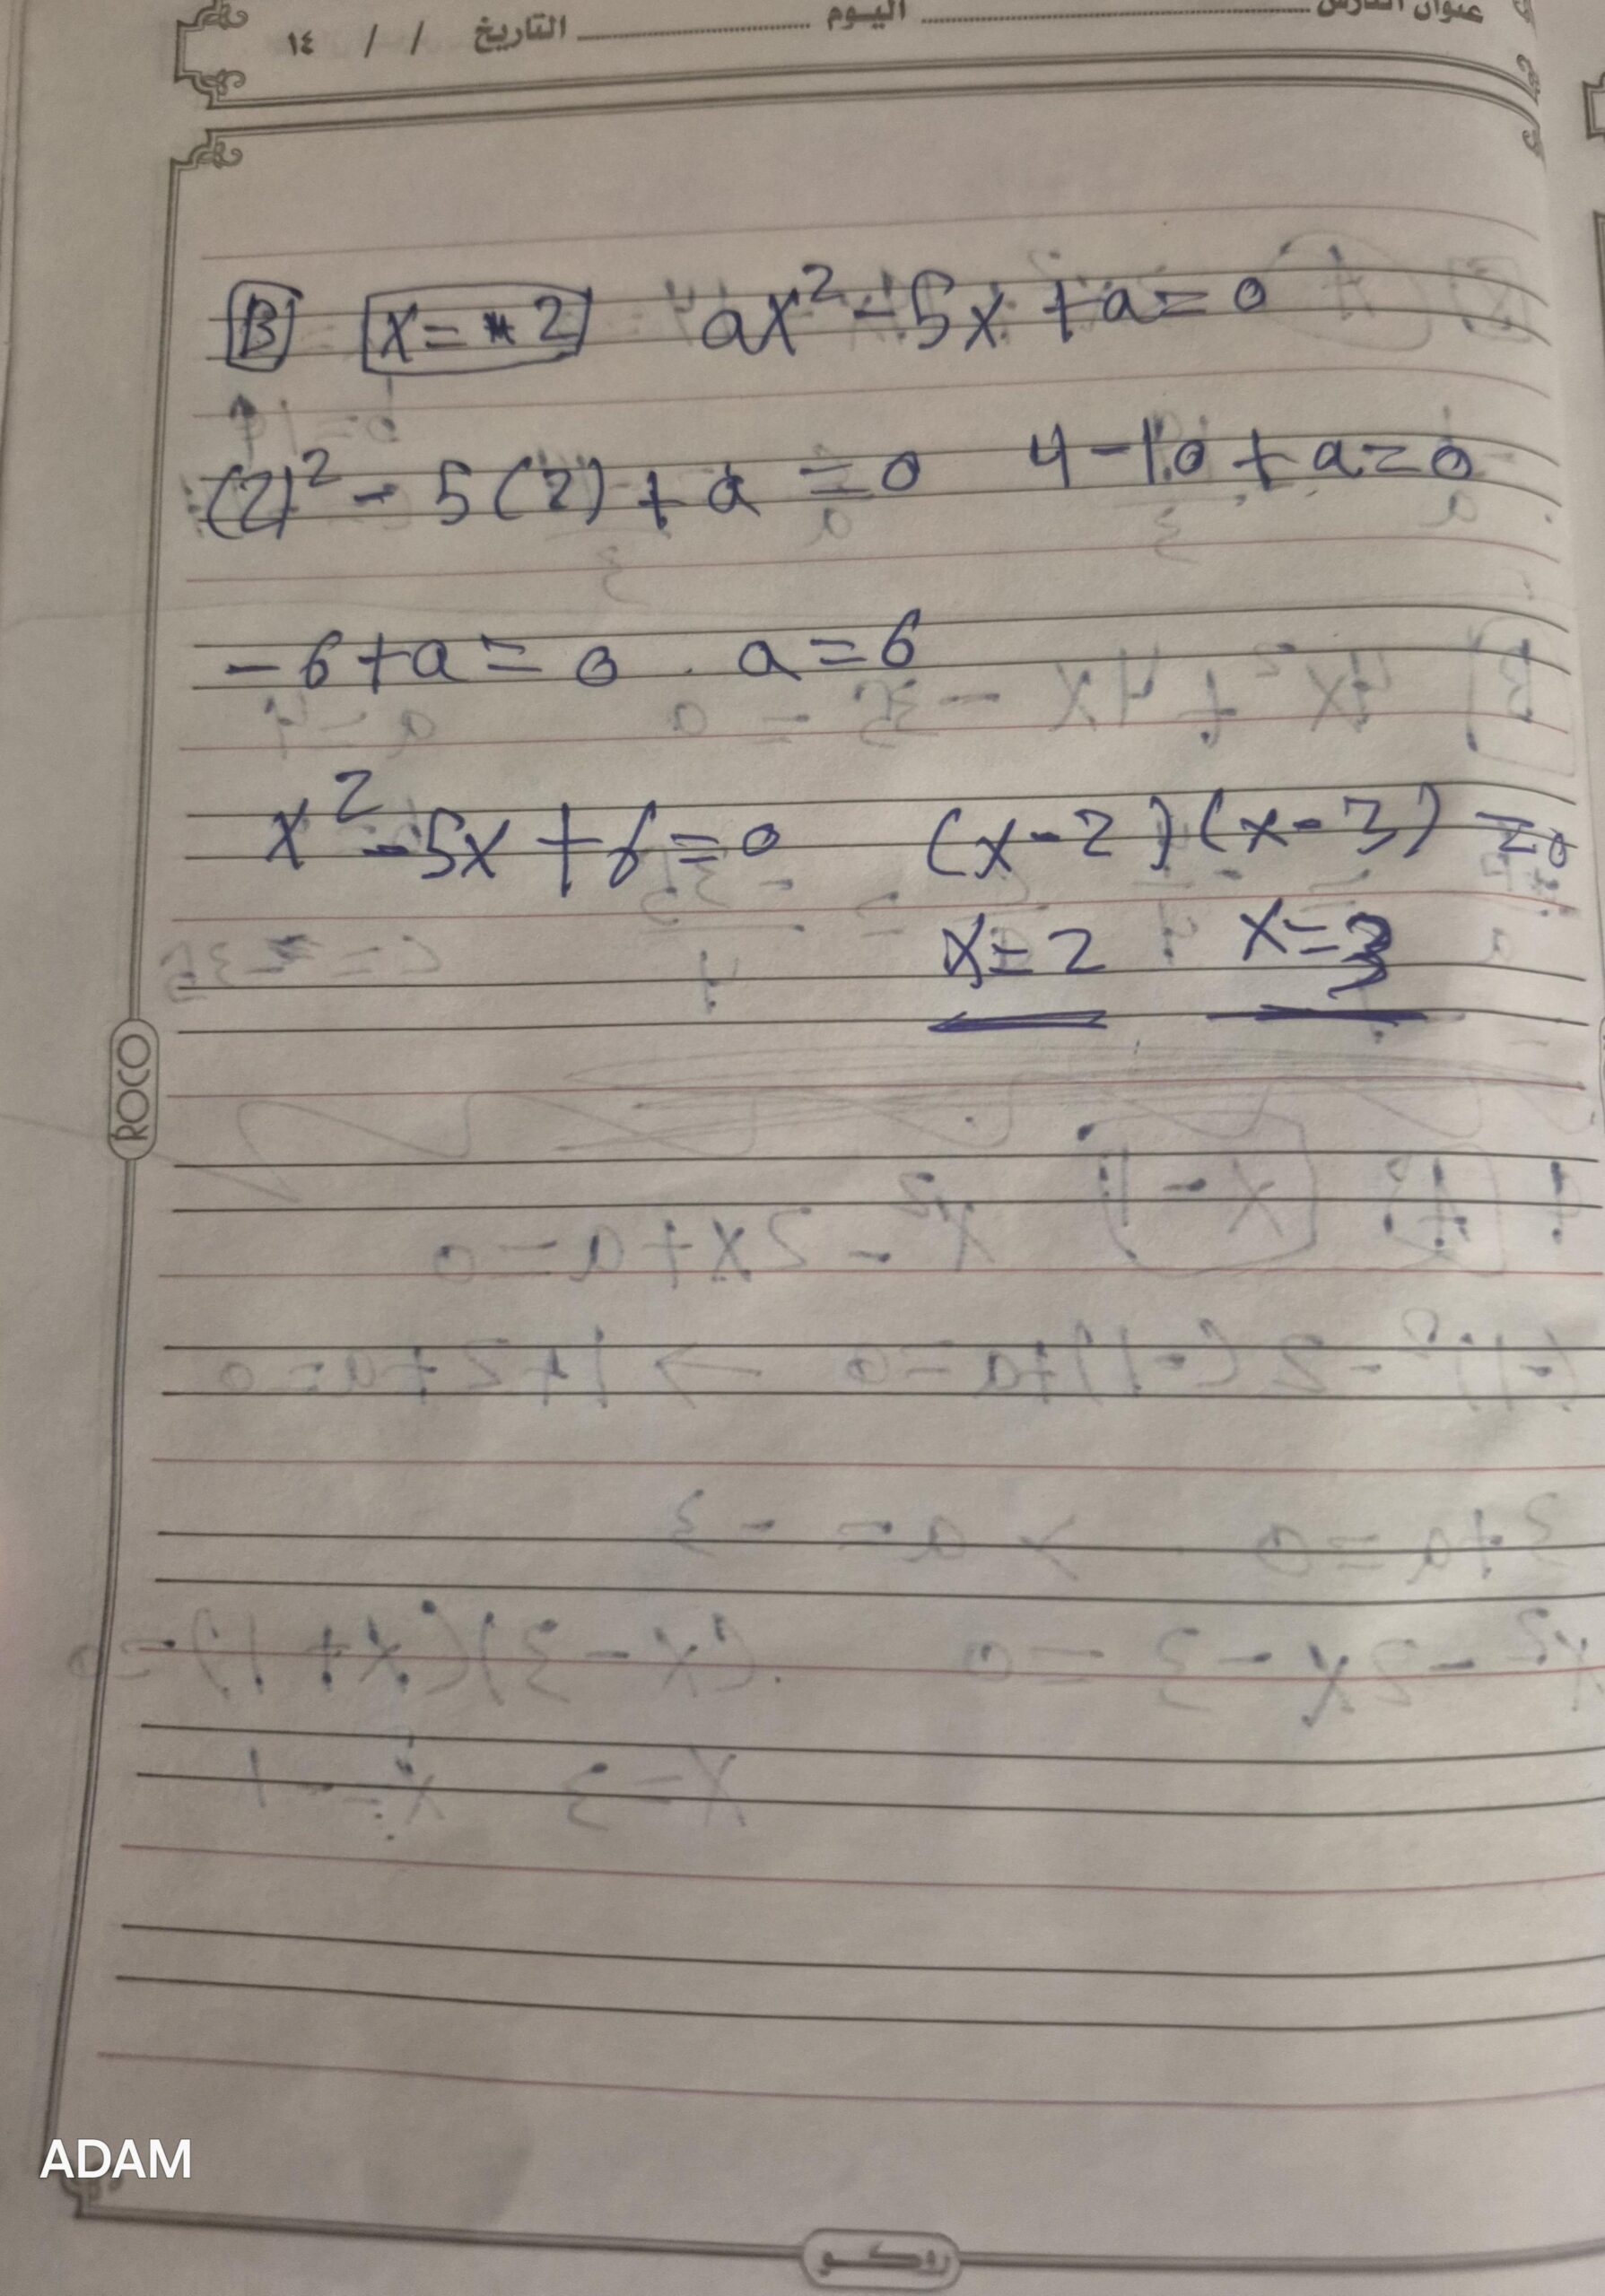 عنوان الدرس اليوم التاريخ / / ١٤
B x = 2 ax² - 5x + a = 0
(2)² - 5(2) + a = 0 4 - 10 + a = 0
- 6 + a = 0 . a = 6
x² - 5x + 6 = 0 (x - 2)(x - 3) = 0
x = 2 x = 3
ROCO
ADAM
روكو